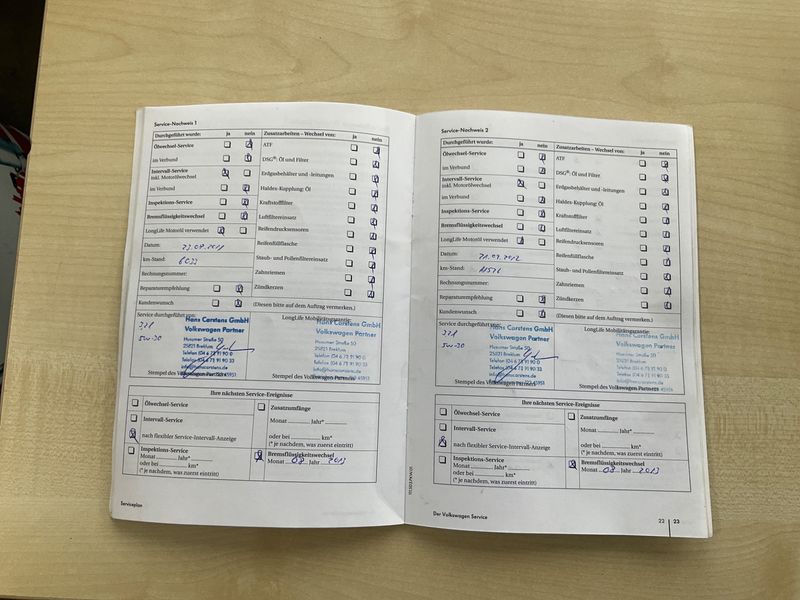 Service-Nachweis 1
Durchgeführt wurde: ja nein
Zusatzarbeiten – Wechsel von: ja nein
Ölwechsel-Service
im Verbund
Intervall-Service
inkl. Motorölwechsel
im Verbund
Inspektions-Service
Bremsflüssigkeitswechsel
LongLife Motoröl verwendet
Datum:
km-Stand: 6033
Rechnungsnummer:
Reparaturempfehlung
Kundenwunsch
ATF
DSG®: Öl und Filter
Erdgasbehälter und -leitungen
Haldex-Kupplung: Öl
Kraftstofffilter
Luftfiltereinsatz
Reifendrucksensoren
Reifenfüllflasche
Staub- und Pollenfiltereinsatz
Zahnriemen
Zündkerzen
(Diesen bitte auf dem Auftrag vermerken.)
Service durchgeführt von:
5W-30
Hans Carstens GmbH
Volkswagen Partner
Husumer Straße 50
25821 Breklum
Telefon (0 4 6 71) 91 90 0
Telefax (0 4 6 71) 91 90 33
info@hanscarstens.de
Stempel des Volkswagen Partners
LongLife Mobilitätsgarantie:
Hans Carstens GmbH
Volkswagen Partner
Husumer Straße 50
25821 Breklum
Telefon (0 4 6 71) 91 90 0
Telefax (0 4 6 71) 91 90 33
info@hanscarstens.de
Stempel des Volkswagen Partners
Ihre nächsten Service-Ereignisse
Ölwechsel-Service
Intervall-Service
nach flexibler Service-Intervall-Anzeige
Inspektions-Service
Monat Jahr*
oder bei km*
(* je nachdem, was zuerst eintritt)
Zusatzumfänge
Monat Jahr*
oder bei km*
(* je nachdem, was zuerst eintritt)
Bremsflüssigkeitswechsel
Monat 08 Jahr 2013
Serviceplan
Service-Nachweis 2
Durchgeführt wurde: ja nein
Zusatzarbeiten – Wechsel von: ja nein
Ölwechsel-Service
im Verbund
Intervall-Service
inkl. Motorölwechsel
im Verbund
Inspektions-Service
Bremsflüssigkeitswechsel
LongLife Motoröl verwendet
Datum:
km-Stand:
Rechnungsnummer:
Reparaturempfehlung
Kundenwunsch
ATF
DSG®: Öl und Filter
Erdgasbehälter und -leitungen
Haldex-Kupplung: Öl
Kraftstofffilter
Luftfiltereinsatz
Reifendrucksensoren
Reifenfüllflasche
Staub- und Pollenfiltereinsatz
Zahnriemen
Zündkerzen
(Diesen bitte auf dem Auftrag vermerken.)
Service durchgeführt von:
5W-30
Hans Carstens GmbH
Volkswagen Partner
Husumer Straße 50
25821 Breklum
Telefon (0 4 6 71) 91 90 0
Telefax (0 4 6 71) 91 90 33
info@hanscarstens.de
Stempel des Volkswagen Partners
LongLife Mobilitätsgarantie:
Hans Carstens GmbH
Volkswagen Partner
Husumer Straße 50
25821 Breklum
Telefon (0 4 6 71) 91 90 0
Telefax (0 4 6 71) 91 90 33
info@hanscarstens.de
Stempel des Volkswagen Partners
Ihre nächsten Service-Ereignisse
Ölwechsel-Service
Intervall-Service
nach flexibler Service-Intervall-Anzeige
Inspektions-Service
Monat Jahr*
oder bei km*
(* je nachdem, was zuerst eintritt)
Zusatzumfänge
Monat Jahr*
oder bei km*
(* je nachdem, was zuerst eintritt)
Bremsflüssigkeitswechsel
Monat 08 Jahr 2013
Der Volkswagen Service
22 23